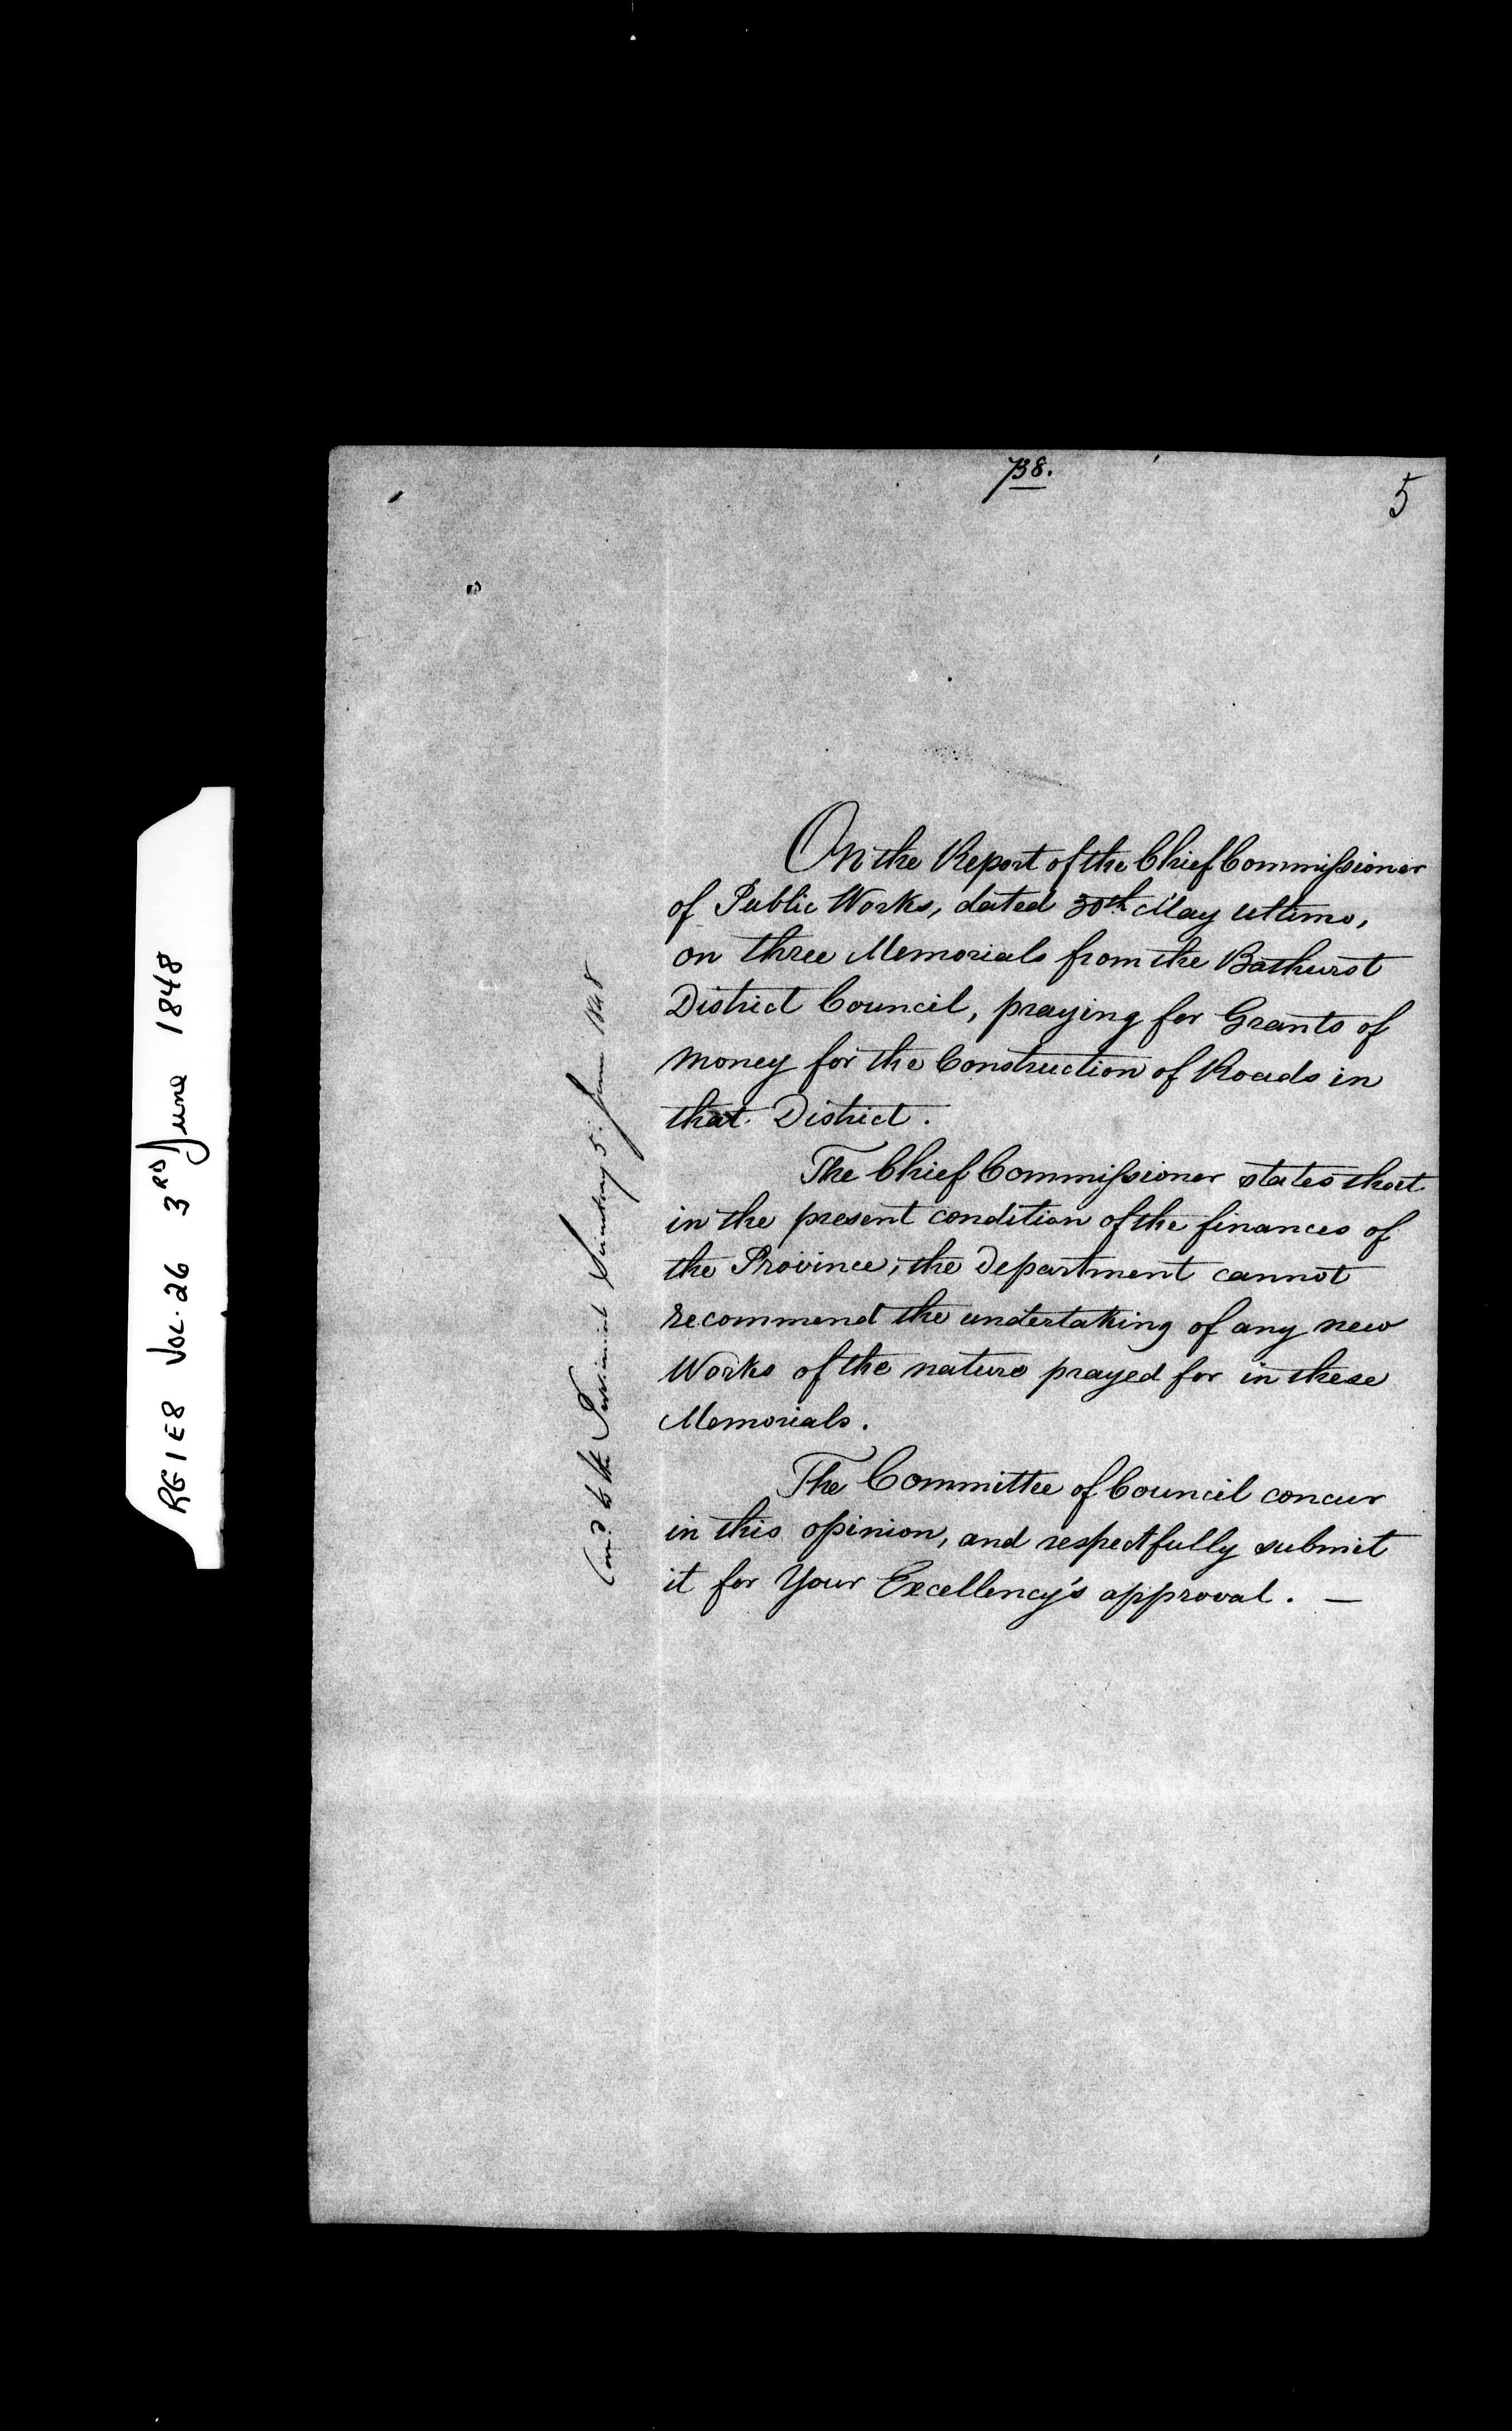 738.
5
On the Report of the Chief Commissioner
of Public Works, dated 30th May ultimo,
on three Memorials from the Bathurst
District Council, praying for Grants of
Money for the Construction of Roads in
that District.
The Chief Commissioner states that
in the present condition of the finances of
the Province, the Department cannot
recommend the undertaking of any new
Works of the nature prayed for in these
Memorials.
The Committee of Council concur
in this opinion, and respectfully submit
it for Your Excellency's approval. —
to the Provincial Secretary 5. June 1848
RG 1 E8 VOL. 26 3RD June 1848